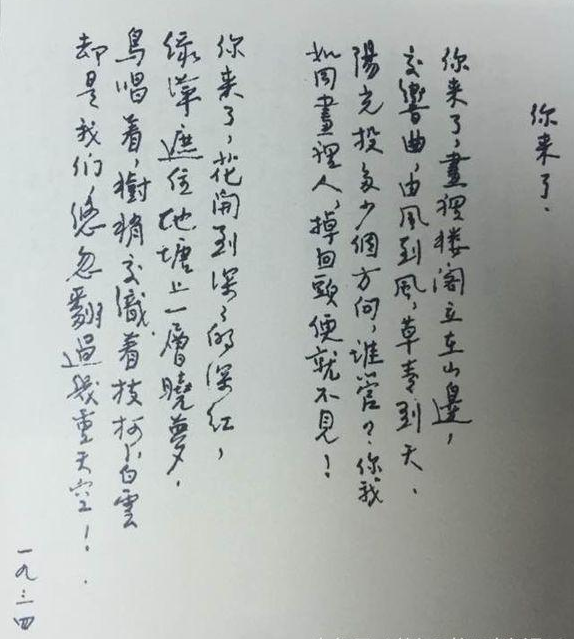 你来了.
你来了，畫裡楼阁立在山邊，
交響曲，由風到風，草青到天.
陽光投多少個方向，誰管？你我
如同畫裡人，掉回頭便就不見！
你来了，花開到深々的深红，
绿萍遮住池塘上一層曉夢.
鳥唱着，樹梢交織着枝柯，白雲
却是我们，悠忽翻過幾重天空！
一九三四